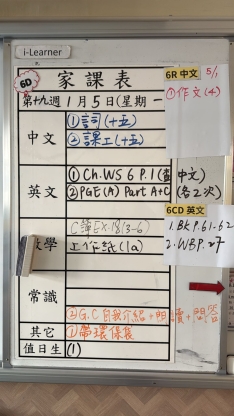 i-Learner
6D
家課表
6R 中文 5/1
①作文(4)
第十九週 1月5日(星期一
中文
①詞(十五)
②課工(十五)
英文
①Ch.WS 6 P.1(
中文)
②PGE(A) Part A+C
(各2次)
6CD 英文
1.BK P.61-62
2.WB P.27
數學
工作紙(1a)
常識
②G.C自我介紹+閱讀+問答
其它
①帶環保袋
值日生
(1)